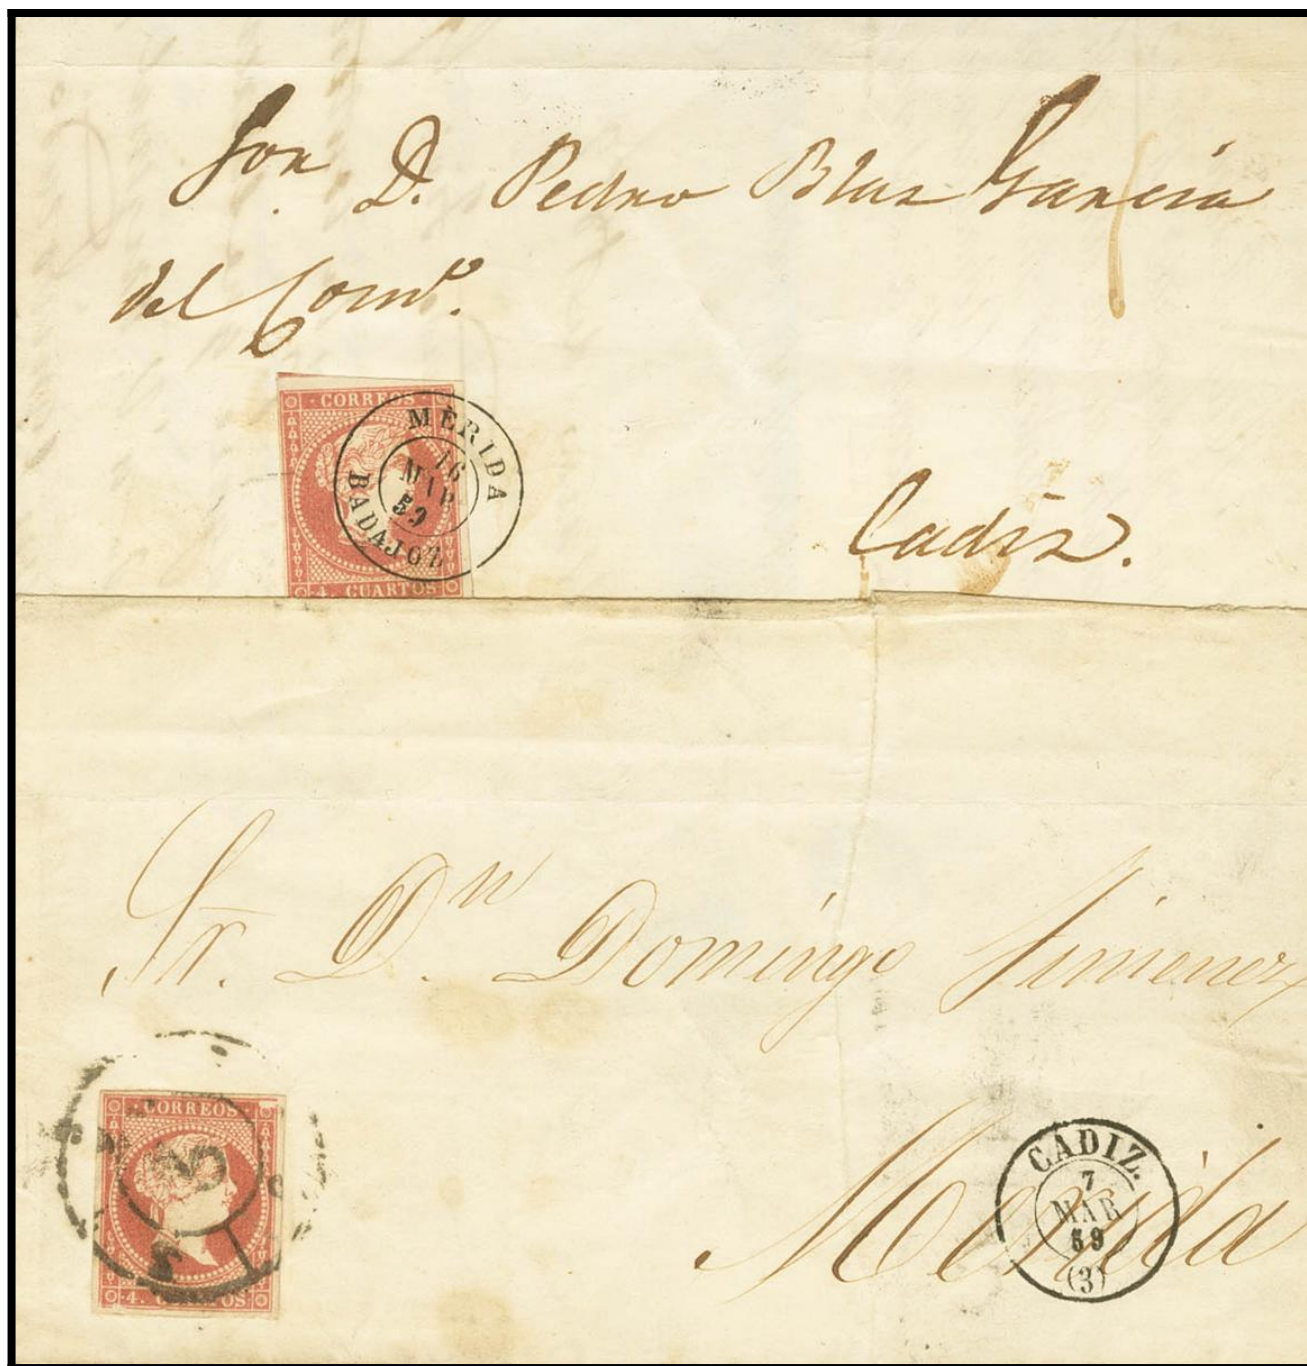 Sor. D. Pedro Blas Garcia
del Como.
CORREOS
MÉRIDA
16
MAR
59
BADAJOZ
4. CUARTOS
Cadiz.
Sr. Dn. Domingo Jimenez
CORREOS
4. CUARTOS
Merida
CADIZ.
7
MAR
59
(3)